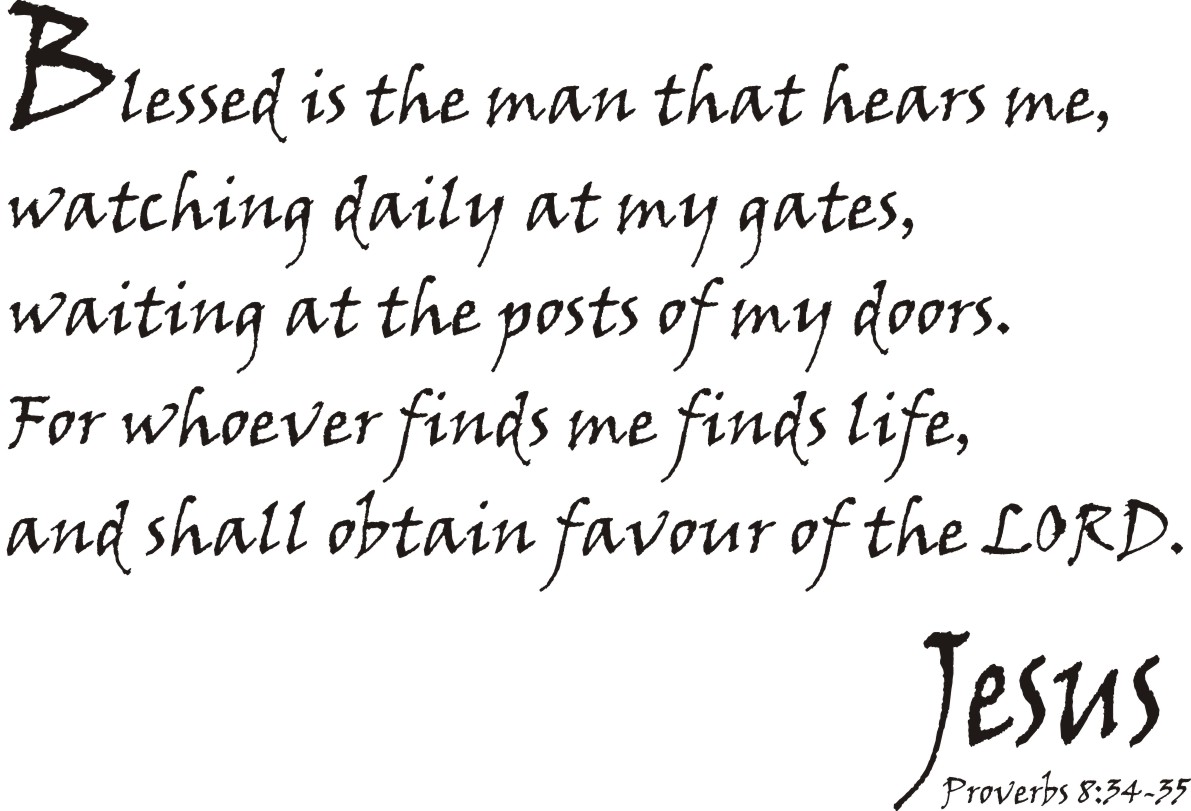 Blessed is the man that hears me,
watching daily at my gates,
waiting at the posts of my doors.
For whoever finds me finds life,
and shall obtain favour of the LORD.
Jesus
Proverbs 8:34-35